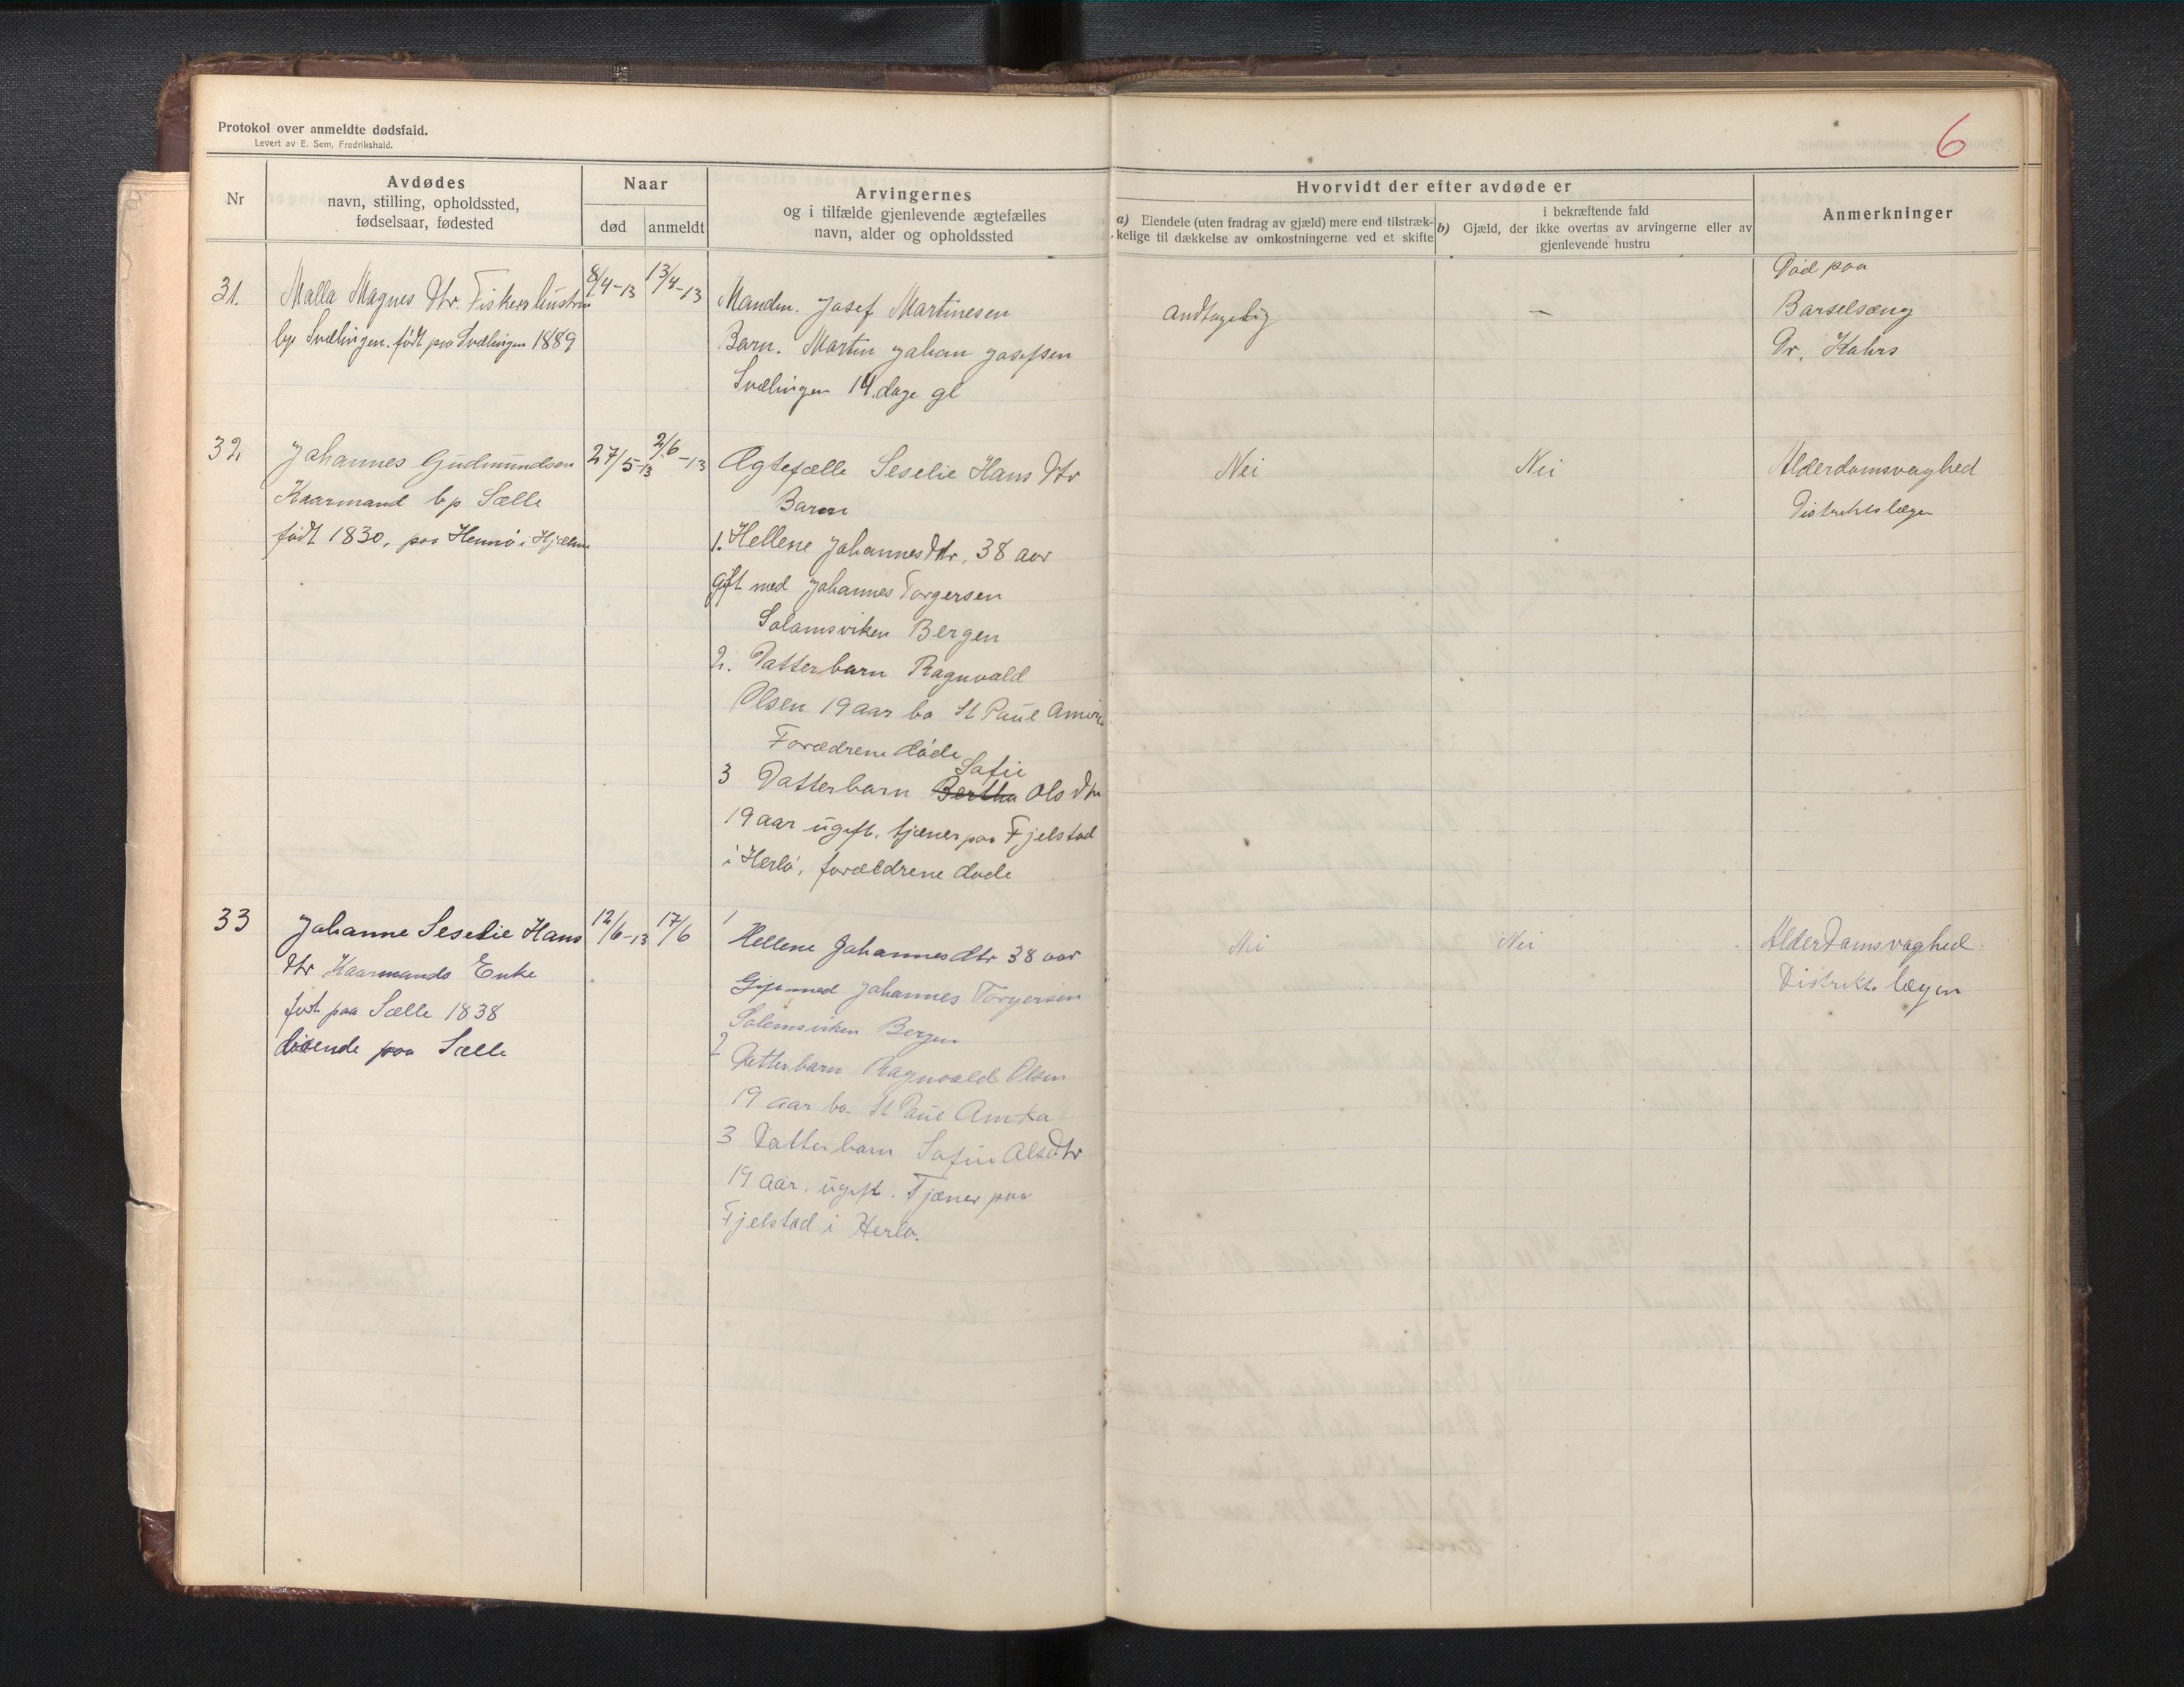 Protokol over anmeldte dødsfald.
Levert av E. Sem, Fredrikshald.
6
Nr
Avdødes
navn, stilling, opholdssted,
fødselsaar, fødested
Naar
død
anmeldt
Arvingernes
og i tilfælde gjenlevende ægtefælles
navn, alder og opholdssted
Hvorvidt der efter avdøde er
a) Eiendele (uten fradrag av gjæld) mere end tilstræk-
kelige til dækkelse av omkostningerne ved et skifte
i bekræftende fald
b) Gjæld, der ikke overtas av arvingerne eller av
gjenlevende hustru
Anmerkninger
31.
Malla Magnes Dtr. Fiskerhustru
bp Svælingen. født paa Svælingen 1889
8/4-13
13/4-13
Manden. Josef Martinesen
Barn. Martin Johan Josefsen
Svælingen 14 dage gl
Antagelig
—
Død paa
Barselsæng
Dr. Kahrs
32,
Johannes Gudmundsen
Kaarmand bp Sælle
født 1830, paa Hennø i Hjelme
27/5-13
2/6-13
Ægtefælle Seselie Hans Dtr
Barn
1. Hellene Johannes Dtr, 38 aar
Gift med Johannes Torgersen
Solamsviken Bergen
2. Datterbarn Ragnvald
Olsen 19 aar bo St Paul Amerc
Forædrene døde
Sofie
3 Datterbarn Bertha Ols Dtr
19 aar ugift, tjener paa Fjelstad
i Herlø, forældrene døde
Nei
Nei
Alderdomsvaghed
Distriktslægen
33
Johanne Seselie Hans
Dtr Kaarmands Enke
født paa Sælle 1838
boende paa Sælle
12/6-13
17/6
1
Hellene Johannes dtr 38 aar
Gift med Johannes Torgersen
Solemsviken Bergen
2
Datterbarn Ragnvald Olsen
19 aar bo St Paul Amka
3 Datterbarn Sofie Olsdtr
19 aar, ugift. Tjener paa
Fjelstad i Herlø.
Nei
Nei
Alderdomsvaghed
Distrikts lægen